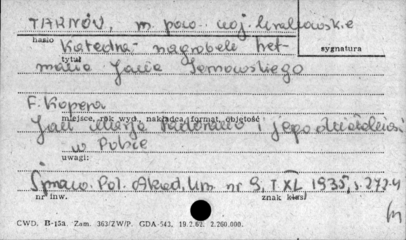 TARNÓW, m. pow. woj. krakowskie
hasło
sygnatura
Katedra - nagrobek het-
tytuł
mana Jana Tarnowskiego
F. Kopera
miejsce, rok wyd., nakładca, format, objętość
Jan Maria Padovano i jego działalność
w Polsce
uwagi:
Spraw. Pol. Akad. Um. nr 9, T XL, 1935, s. 272-4
nr inw.
znak klas.
CWD. B-15a. Zam. 363/ZW/P. GDA-543. 19.2.62. 2.260.000.